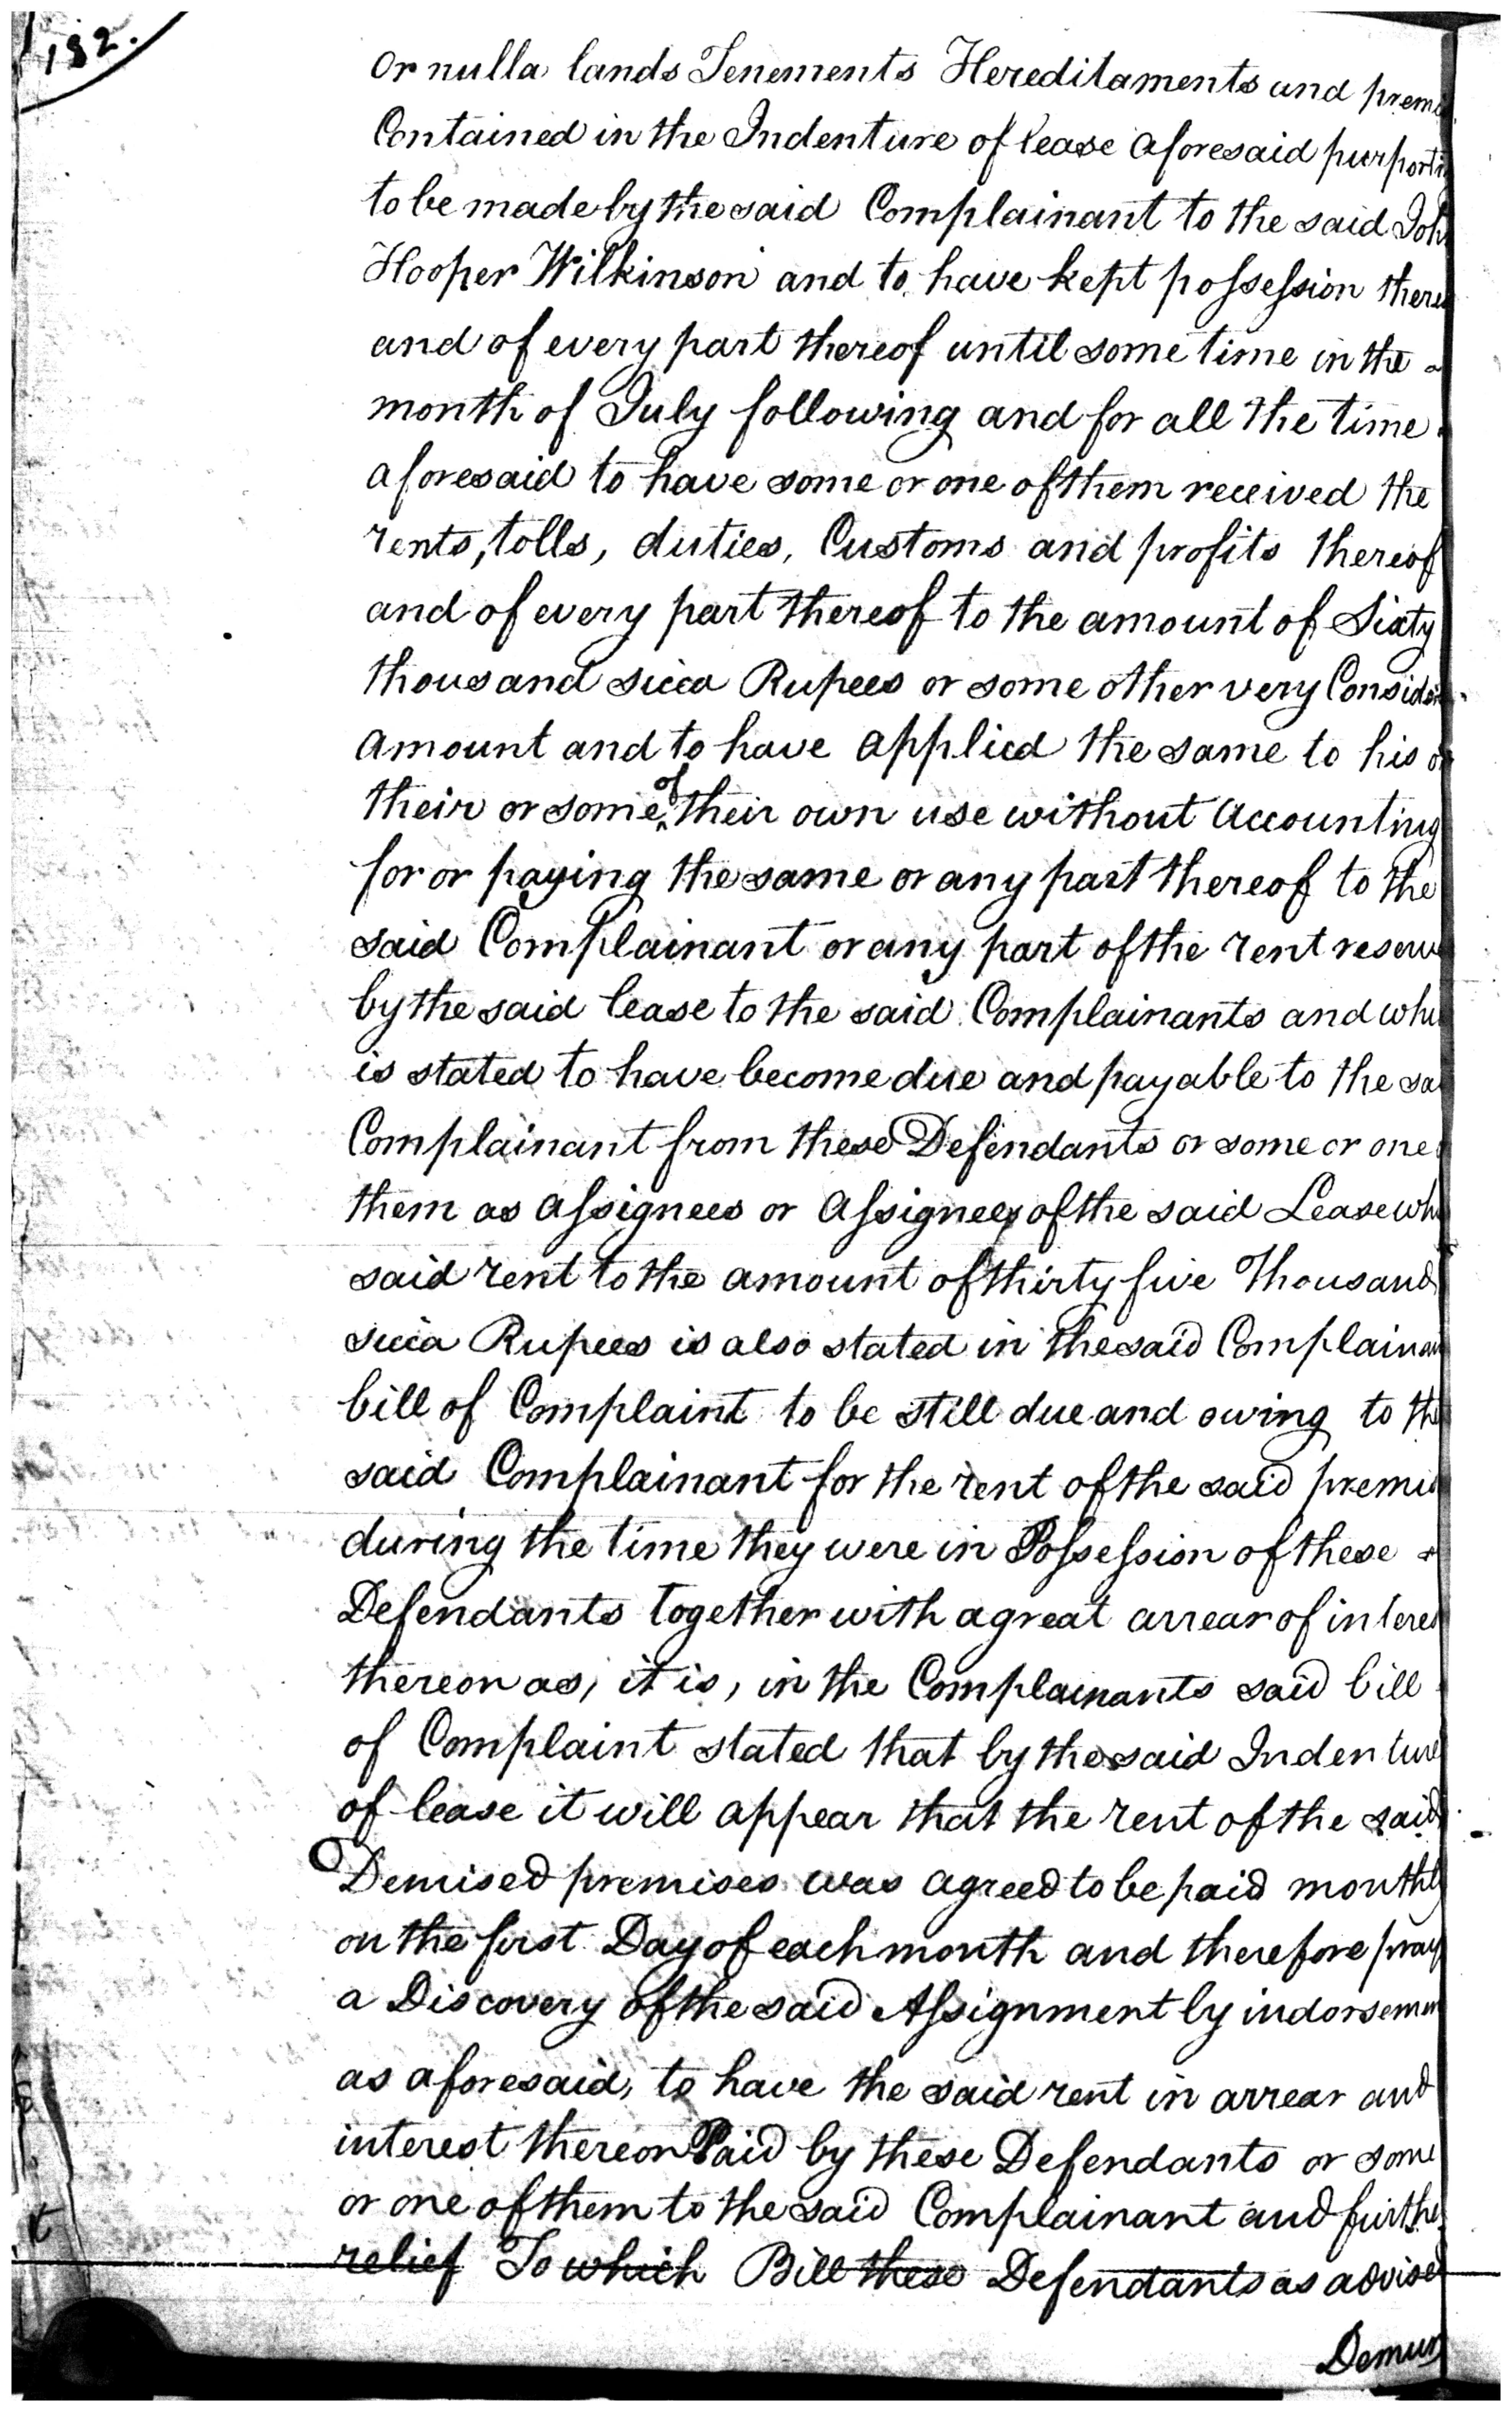 182.
or nulla lands Tenements Hereditaments and premi
Contained in the Indenture of lease aforesaid purporti
to be made by the said Complainant to the said Joh
Hooper Wilkinson and to have kept possession there
and of every part thereof until some time in the
month of July following and for all the time
aforesaid to have some or one of them received the
rents, tolls, duties, Customs and profits thereof
and of every part thereof to the amount of Sixty
thousand sicca Rupees or some other very Consider
amount and to have applied the same to his or
their or some of their own use without accounting
for or paying the same or any part thereof to the
said Complainant or any part of the rent reserv
by the said lease to the said Complainants and whi
is stated to have become due and payable to the sa
Complainant from these Defendants or some or one
them as assignees or assignee of the said Lease wh
said rent to the amount of thirty five Thousand
sicca Rupees is also stated in the said Complainan
bill of Complaint to be still due and owing to the
said Complainant for the rent of the said premis
during the time they were in Possession of these
Defendants together with a great arrear of interes
thereon as, it is, in the Complainants said bill
of Complaint stated that by the said Indenture
of lease it will appear that the rent of the said
Demised premises was agreed to be paid monthly
on the first Day of each month and therefore pray
a Discovery of the said Assignment by indorsemen
as aforesaid, to have the said rent in arrear and
interest thereon Paid by these Defendants or some
or one of them to the said Complainant and furthe
relief To which Bill these Defendants as advise
Demur